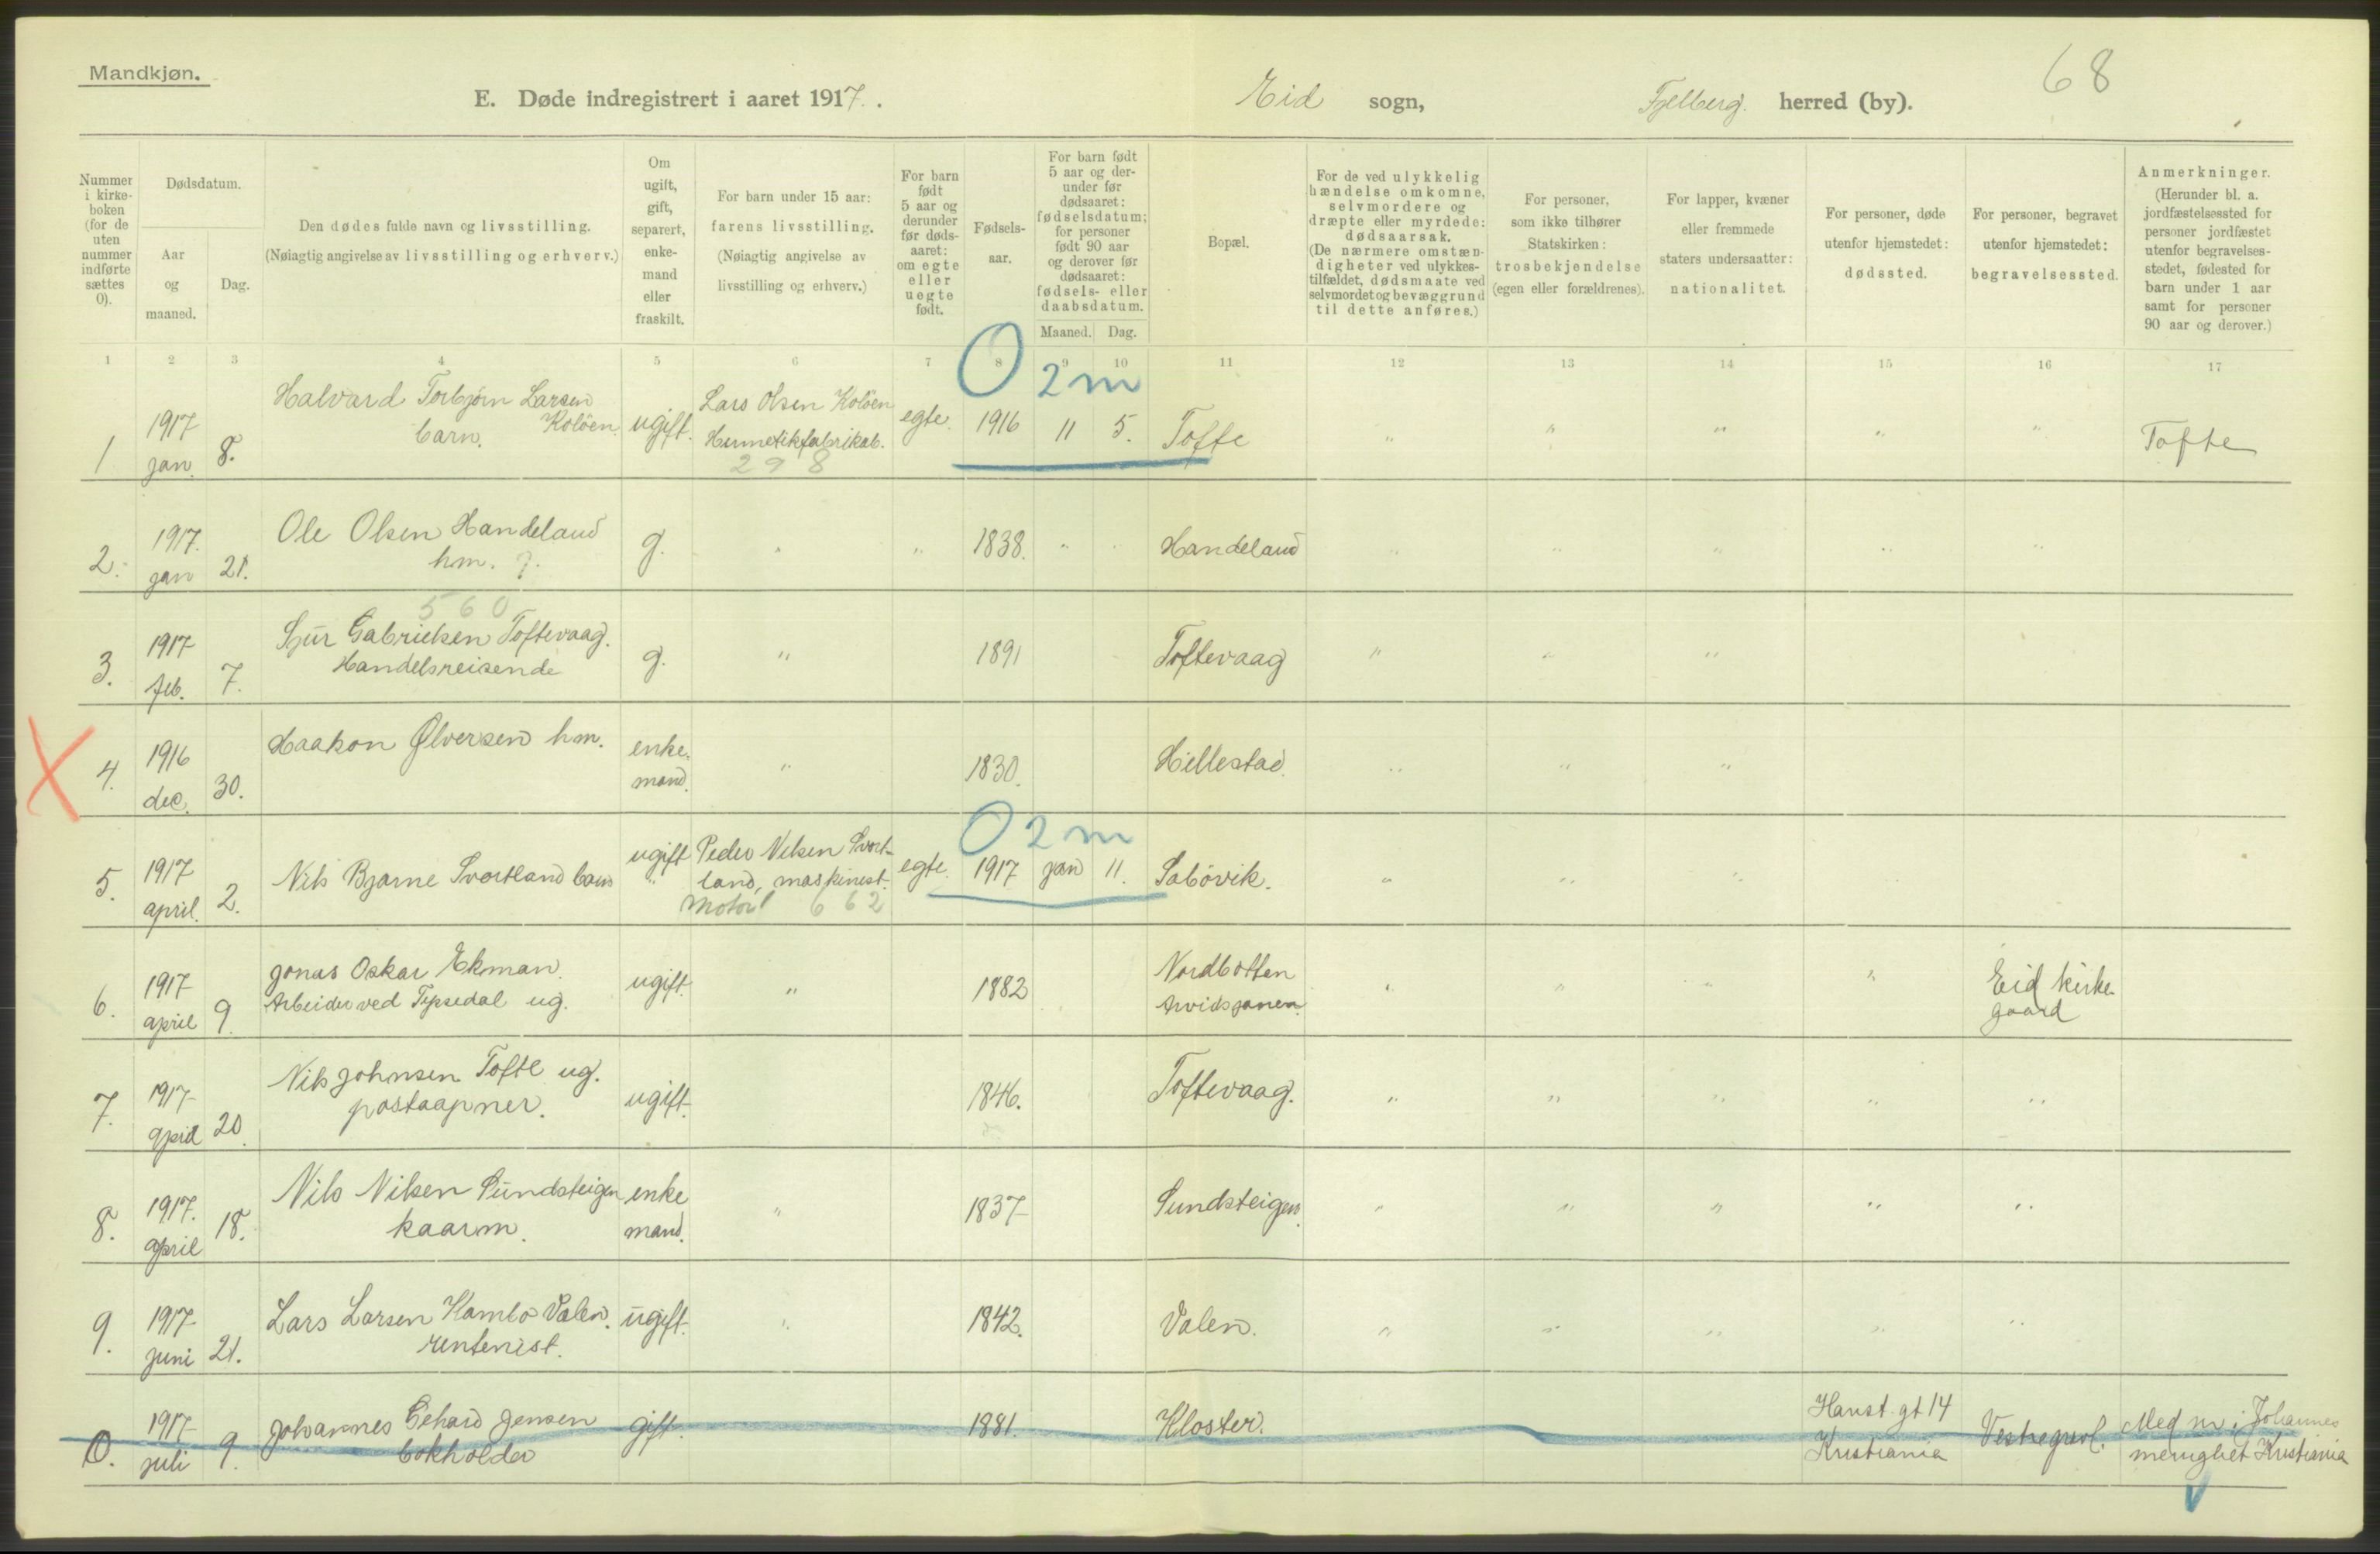 Mandkjøn.
68
E. Døde indregistrert i aaret 1917.
Eid sogn,
Fjelberg. herred (by).
Nummer i kirke-boken (for de uten nummer indførte sættes 0).
Dødsdatum.
Aar og maaned.
Dag.
Den dødes fulde navn og livsstilling.
(Nøiagtig angivelse av livsstilling og erhverv.)
Om ugift, gift, separert, enke-mand eller fraskilt.
For barn under 15 aar: farens livsstilling. (Nøiagtig angivelse av livsstilling og erhverv.)
For barn født 5 aar og derunder før døds-aaret: om egte eller uegte født.
Fødsels-aar.
For barn født 5 aar og der-under før dødsaaret: fødselsdatum; for personer født 90 aar og derover før dødsaaret: fødsels- eller daabsdatum.
Maaned. Dag.
Bopæl.
For de ved ulykkelig hændelse omkomne, selvmordere og dræpte eller myrdede: dødsaarsak. (De nærmere omstæn-digheter ved ulykkes-tilfældet, dødsmaate ved selvmordet og bevæggrund til dette anføres.)
For personer, som ikke tilhører Statskirken: trosbekjendelse (egen eller forældrenes).
For lapper, kvæner eller fremmede staters undersaatter: nationalitet.
For personer, døde utenfor hjemstedet: dødssted.
For personer, begravet utenfor hjemstedet: begravelsessted.
Anmerkninger. (Herunder bl. a. jordfæstelsessted for personer jordfæstet utenfor begravelses-stedet, fødested for barn under 1 aar samt for personer 90 aar og derover.)
1 2 3 4 5 6 7 8 9 10 11 12 13 14 15 16 17
0 2 m
1 1917 jan. 8. Halvard Torbjørn Larsen Kolöen barn. ugift. Lars Olsen Kolöen Hermetikfabrikab. egte. 1916 11 5. Tofte " " " " " Tofte
298
2. 1917. jan 21. Ole Olsen Handeland hm. g. " " 1838. " " Handeland " " " " "
560
3. 1917 feb. 7. Sjur Gabrielsen Toftevaag. Handelsreisende g. " 1891 Toftevaag " " "
X 4. 1916 dec. 30. Haakon Ølversen hm. enke. mand. " 1830. Hillestad. " " "
0 2 m
5. 1917 april. 2. Nils Bjarne Svortland barn ugift " Peder Nilsen Svort-land, maskinist. egte. 1917 jan 11. Sabövik. " " " " "
Motor 662
6. 1917 april 9. Jonas Oskar Ekman. Arbeider ved Tyssedal ug. ugift. " 1882 Nordbotten Arvidsjanen. " " " " Eid kirke gaard
7. 1917 april 20. Nils Johnsen Tofte ug. postaapner. ugift. 1846. Toftevaag. " " " " "
8. 1917. april 18. Nils Nilsen Sundsteigen kaarm. enke mand. " 1837 Sundsteigen. " " " " "
9. 1917 juni 21. Lars Larsen Kambo Valen. rentenist. ugift. " 1842. Valen. " " " " "
0. 1917 juli 9. Johannes Gehard Jensen bokholder gift. 1881. Kloster. Hanst. gt 14 Kristiania Vestre gravl. Med m i Johannes menighet Kristiania